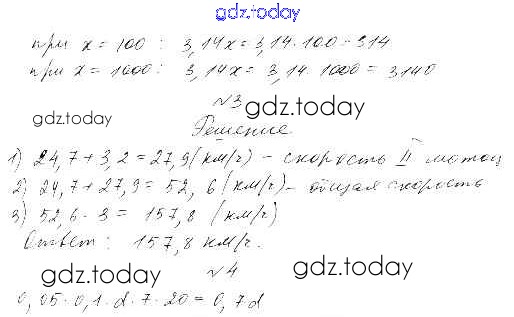 gdz.today
при x = 100 : 3,14x = 3,14 · 100 = 314
при x = 1000 : 3,14x = 3,14 · 1000 = 3140
№3
gdz.today
gdz.today
Решение
1) 24,7 + 3,2 = 27,9 (км/ч) - скорость II мотоц
2) 24,7 + 27,9 = 52,6 (км/ч) - общая скорость
3) 52,6 · 3 = 157,8 (км/ч)
Ответ: 157,8 км/ч.
gdz.today
№4
gdz.today
0,05 · 0,1 · d · 7 · 20 = 0,7d